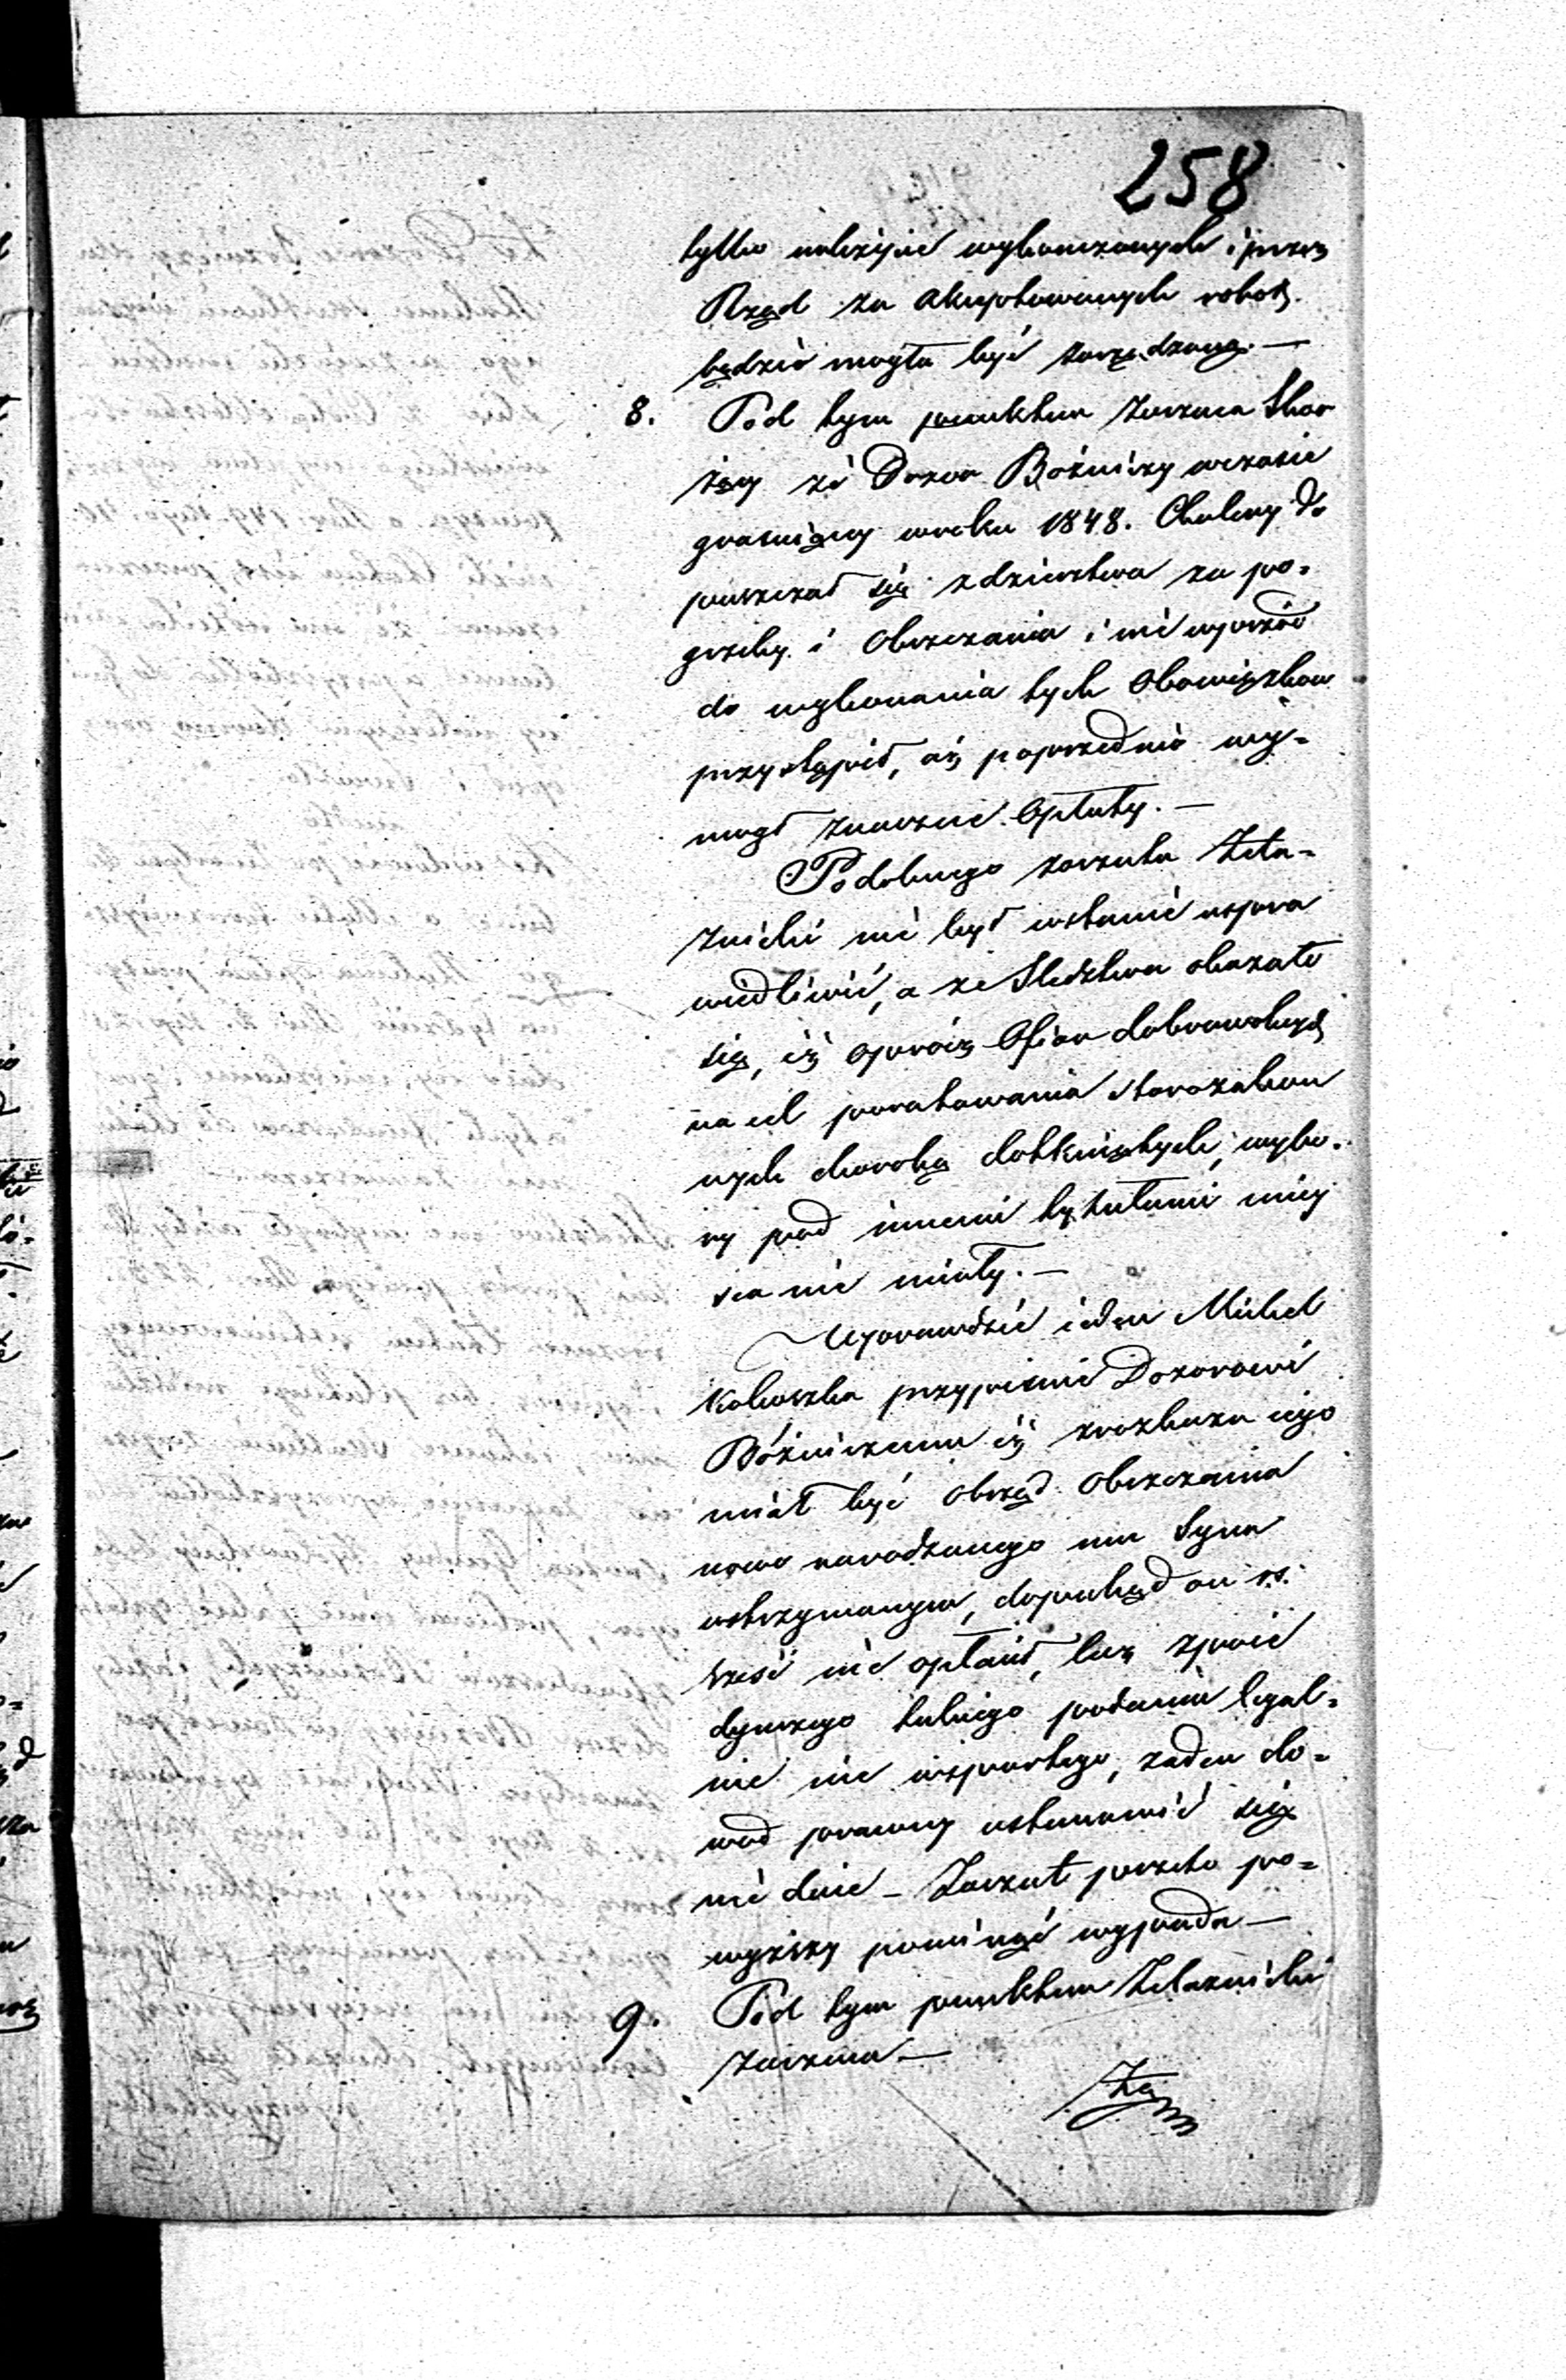 258
tylko należycie wykonczonych i przez
Rząd za akceptowanych robot
będzie mogła być zarządzoną. —
8. Pod tym punktem zarzuca Skar
żący że Dozor Bożniczy w czasie
grasującej w roku 1848. Cholery do
puszczał się zdzierstwa za po=
grzeby i Obrzezania i nie wprzód
do wykonania tych Obowiązkow
przystąpił, aż poprzednio wy=
mógł znaczne Opłaty. —
Podobnego zarzutu Żela=
źnicki nie był w stanie uspra
wiedliwić, a ze Sledztwa okazało
się, iż oprócz Ofiar dobrowolnych
na cel poratowania starozakon
nych chorobą dotkniętych, wybo.
ry pod innemi tytułami miey
sca nie miały. —
Wprawdzie ieden Michel
przypisuie Dozorowi
Bóżniczemu iż z rozkazu iego
miał być obrząd Obrzezania
nowo narodzonego mu Syna
wstrzymanym, dopokąd on rs.
sześć nie opłacił, lecz z poie
dynczego takiego podania legal=
nie nie wspartego, żaden do=
wod prawny ustanowić się
nie daie — Zarzut przeto po=
wyższy pominąć wypada —
9. Pod tym punktem Żelaźnicki
zarzuca —